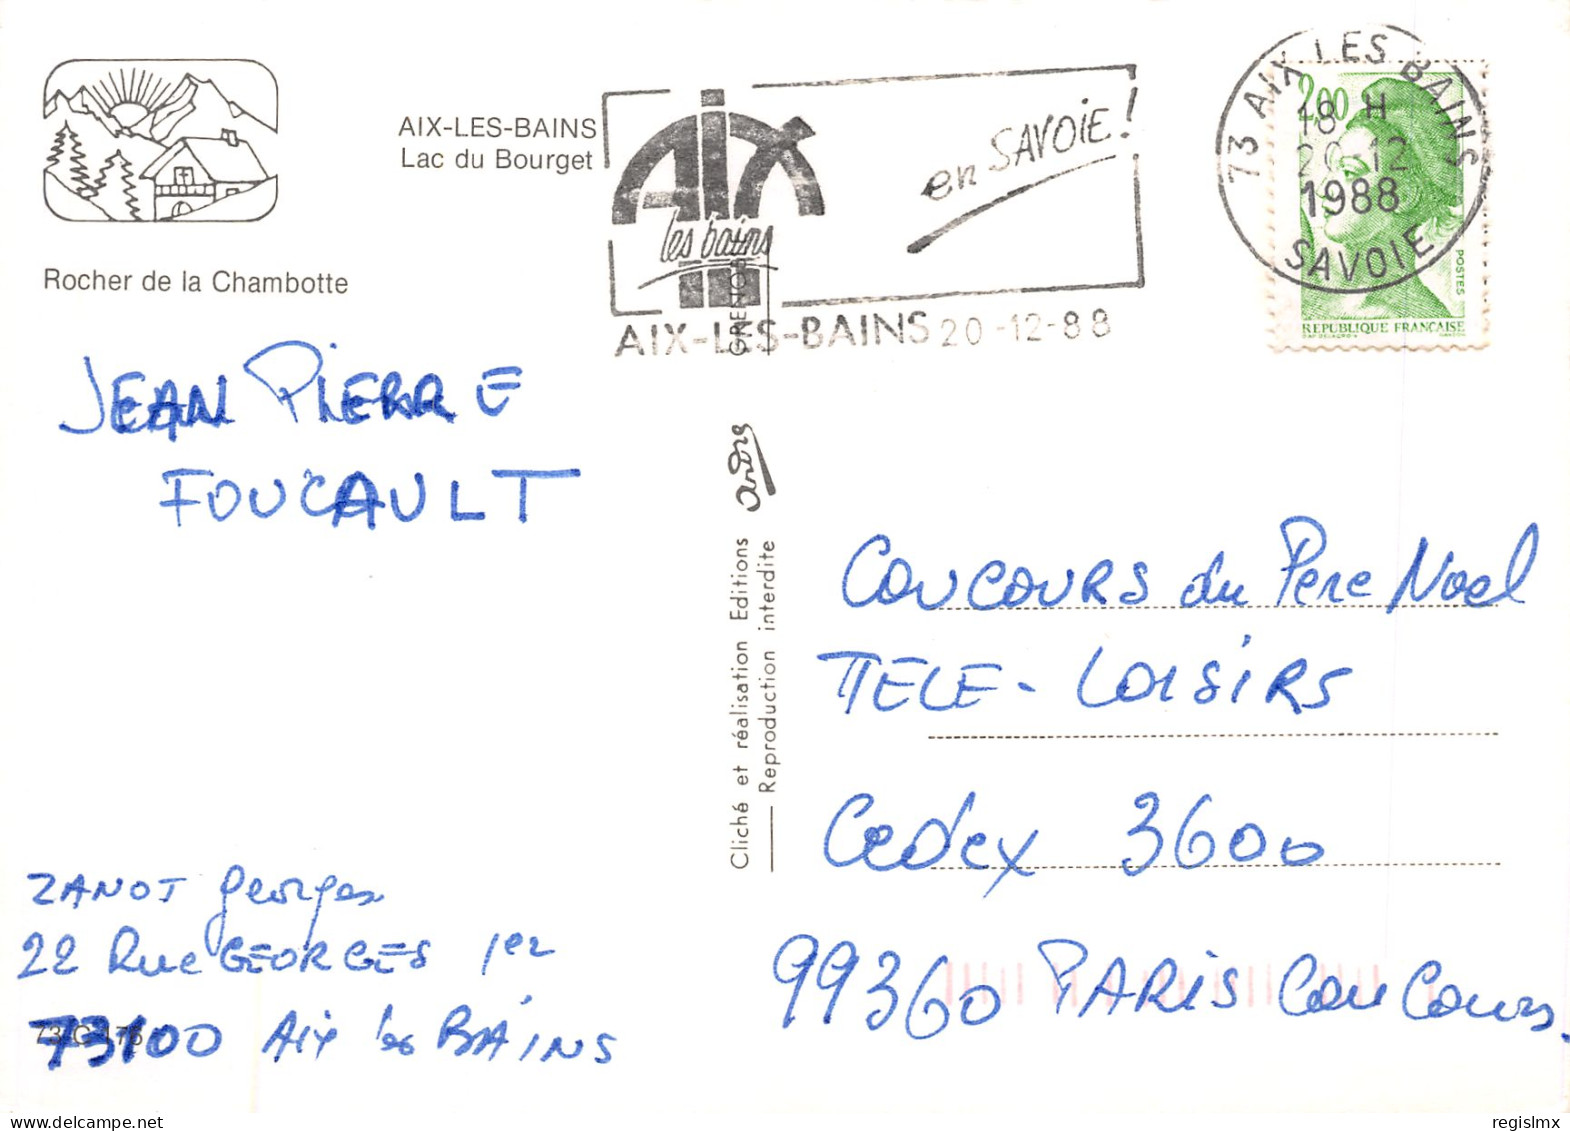 AIX-LES-BAINS
Lac du Bourget
Rocher de la Chambotte
AIX
les bains
en SAVOIE !
AIX-LES-BAINS 20-12-88
73 AIX LES BAINS
18 H
20-12
1988
SAVOIE
2,00
POSTES
REPUBLIQUE FRANÇAISE
JEAN PIERRE
FOUCAULT
Cliché et réalisation Editions
Reproduction interdite
CONCOURS du Père Noel
TELE-LOISIRS
Cedex 3600
99360 PARIS Concours.
ZANOT georges
22 Rue GEORGES 1er
73100 Aix les BAiNS
regislmx